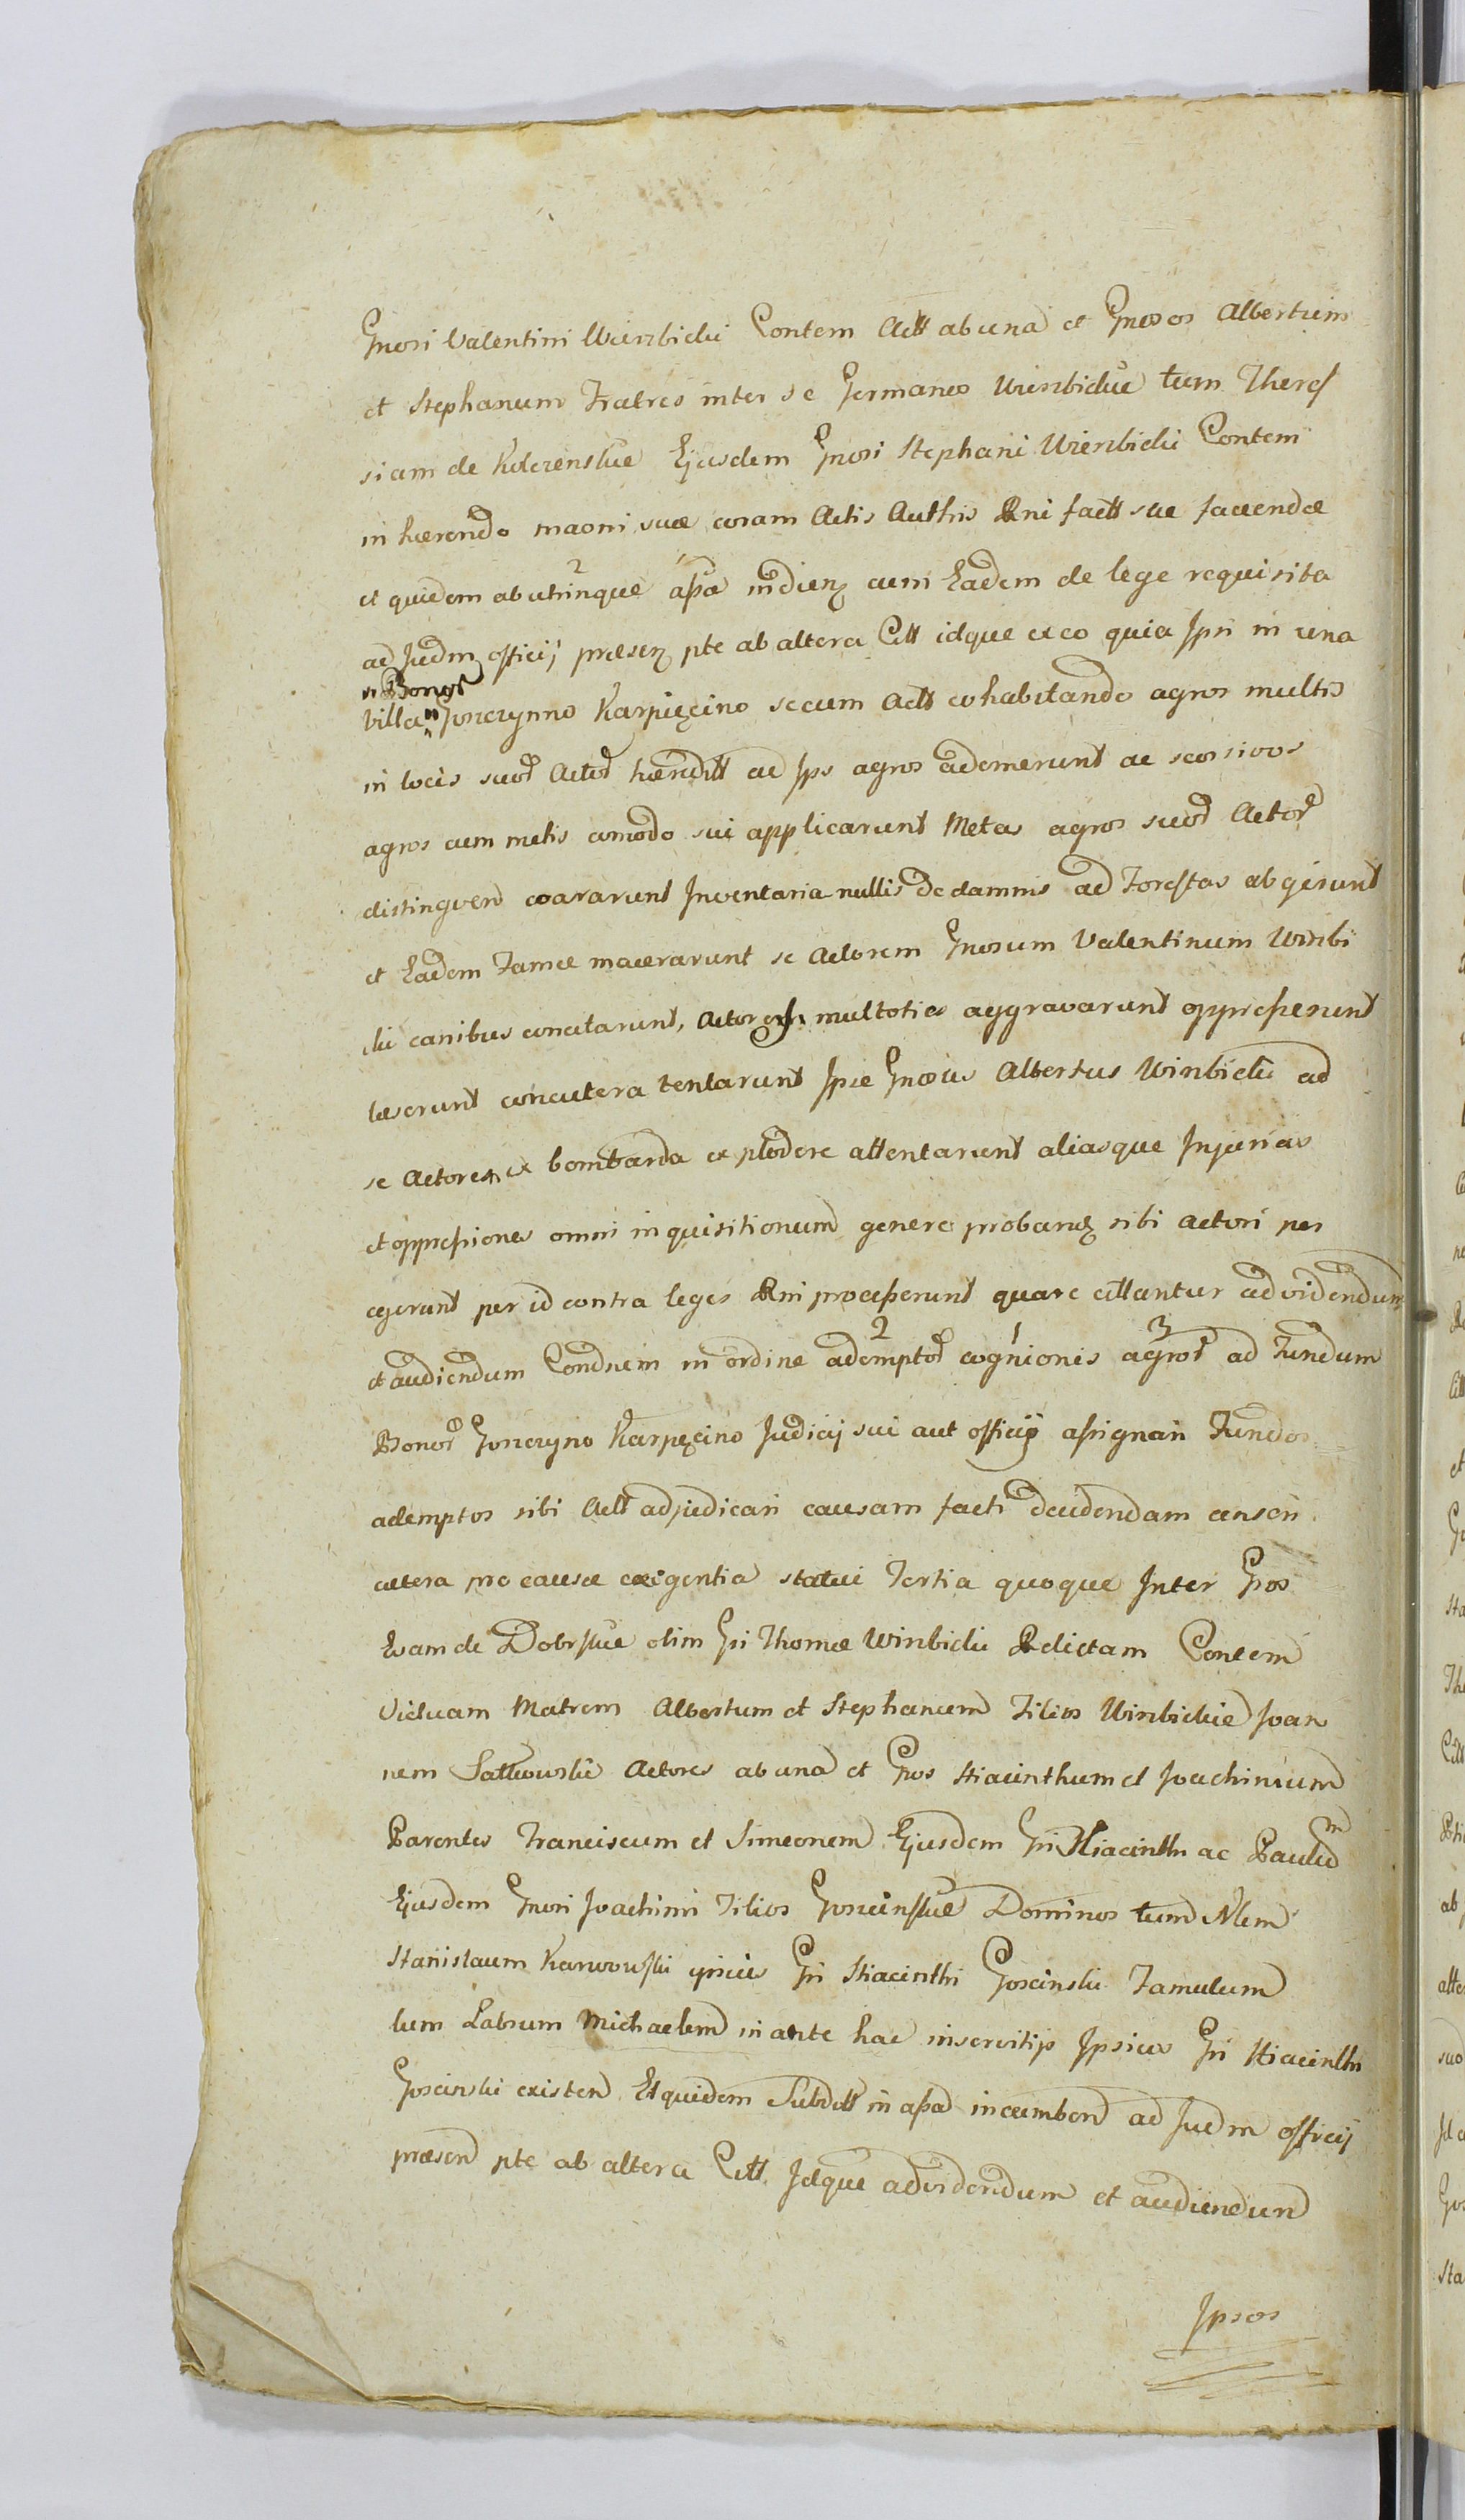 Gnosi Valentini Wierzbicki Contem Actt ab una et Gnosos Albertum
et Stephanum Fratres inter se Germanos Wierzbickie tum There
siam de Kolczenskie Ejusdem Gnosi Stephani Wierzbicki Contem
in hærendo maoni suæ coram Actis Authis Rni factt suæ faciendæ
et quidem ab utrinque apa indienz cum Eadem de lege requisita
ad Judm officij præsenz pte ab altera Citt idque ex eo quia Ipsi in una
Bonor
villa Goszczynno Karpięcino secum Actt cohabitando agros multis
in locis suor Actor hæreditt ad Ips agros ademerunt ac scorsivos
agros cum metis comodo sui applicarunt Metas agros suor Actor
distingven coararunt Inventaria nullis de damnis ad Forestas abgerunt
et Eadem Famæ macerarunt se Actorem Gnosum Valentinum Wirzbi
cki canibus concitarunt, Actorem multoties aggravarunt oppresserunt
læserunt concutera tentarunt Ipse Gnosus Albertus Wirzbicki ad
se Actorem ex bombarda explodere attentarunt aliasque Injurias
et oppressiones omni inquisitionum genere probanz sibi actori per
egerunt per id contra leges Rni processerunt quare cittantur ad videndum
2 1 3
et audiendum Condnem in ordine ademptor cognionis agror ad Fundum
Bonor Goszczyno Karpęcino Judicij sui aut officij assignari Fundos
ademptos sibi Actt adjudicari causam facti decidendam censeri
cætera pro causæ exigentia statui Tertia quoque Inter Gnos
Evam de Dobrskie olim Gni Thomæ Wirzbicki Relictam Contem
Viduam Matrem Albertum et Stephanum Filios Wirzbickie Joan
nem Sattkowski Actores ab una et Gnos Hiacinthum et Joachimum
Parentes Franciscum et Simeonem Ejusdem Gni Hiacinthi ac Paulum
Ejusdem Gnosi Joachimi Filios Goscinskie Dominos tum Nlem
Stanislaum Karwowski ipsius Gni Hiacinthi Goscinski Famulum
tum Labrum Michaelem in ante hac inservitijs Ipsius Gni Hiacinthi
Goscinski existen Et quidem Subdtt in apad incumben ad Judm officij
præsen pte ab altera Citt. Idque ad videndum et audiendum
Ipsos